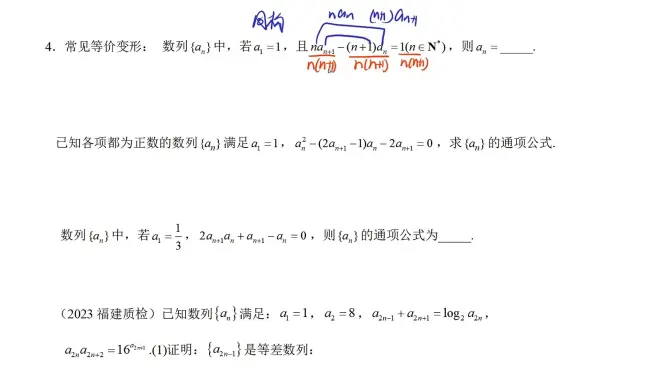 同构 na_n (n+1)a_{n+1}
4. 常见等价变形： 数列{a_n}中，若a_1=1，且na_{n+1}-(n+1)a_n=1(n∈N*)，则a_n=_____.
n(n+1) n(n+1) n(n+1)
已知各项都为正数的数列{a_n}满足a_1=1，a_n^2-(2a_{n+1}-1)a_n-2a_{n+1}=0，求{a_n}的通项公式.
数列{a_n}中，若a_1=1/3，2a_{n+1}a_n+a_{n+1}-a_n=0，则{a_n}的通项公式为_____.
（2023 福建质检）已知数列{a_n}满足：a_1=1，a_2=8，a_{2n-1}+a_{2n+1}=log_2 a_{2n}，
a_{2n}a_{2n+2}=16^{a_{2n+1}}.(1)证明：{a_{2n-1}}是等差数列：